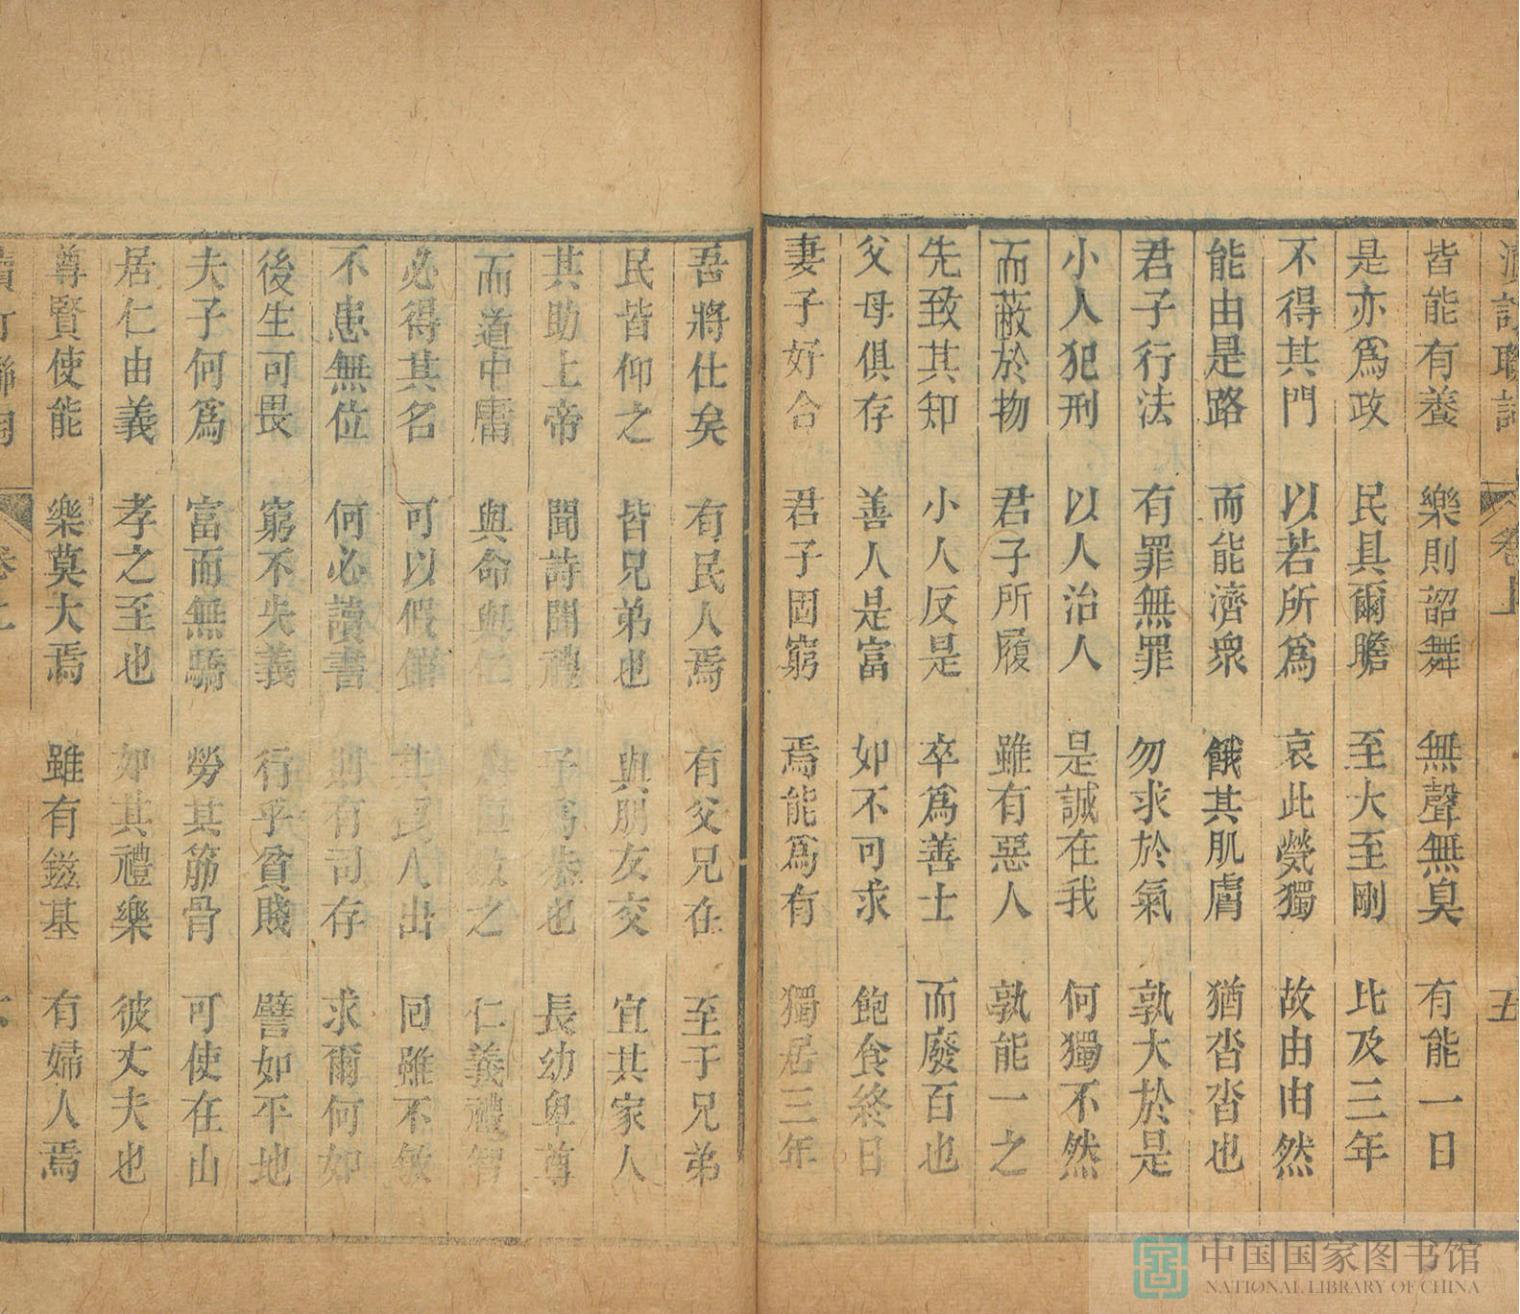 皆能有養 樂則韶舞 無聲無臭 有能一日
是亦爲政 民具爾瞻 至大至剛 比及三年
不得其門 以若所爲 哀此煢獨 故由由然
能由是路 而能濟衆 餓其肌膚 猶沓沓也
君子行法 有罪無罪 勿求於氣 孰大於是
小人犯刑 以人治人 是誠在我 何獨不然
而蔽於物 君子所履 雖有惡人 孰能一之
先致其知 小人反是 卒爲善士 而廢百也
父母俱存 善人是富 如不可求 飽食終日
妻子好合 君子固窮 焉能爲有 獨居三年
吾將仕矣 有民人焉 有父兄在 至于兄弟
民皆仰之 皆兄弟也 與朋友交 宜其家人
其助上帝 聞詩聞禮 子爲恭也 長幼卑尊
而道中庸 與命與仁 之 仁義禮智
必得其名 可以假館 其民人出 回雖不敏
不患無位 何必讀書 則有司存 求爾何如
後生可畏 窮不失義 行乎貧賤 譬如平地
夫子何爲 富而無驕 勞其筋骨 可使在山
居仁由義 孝之至也 如其禮樂 彼丈夫也
尊賢使能 樂莫大焉 雖有鎡基 有婦人焉
卷上
五
中国国家图书馆
NATIONAL LIBRARY OF CHINA